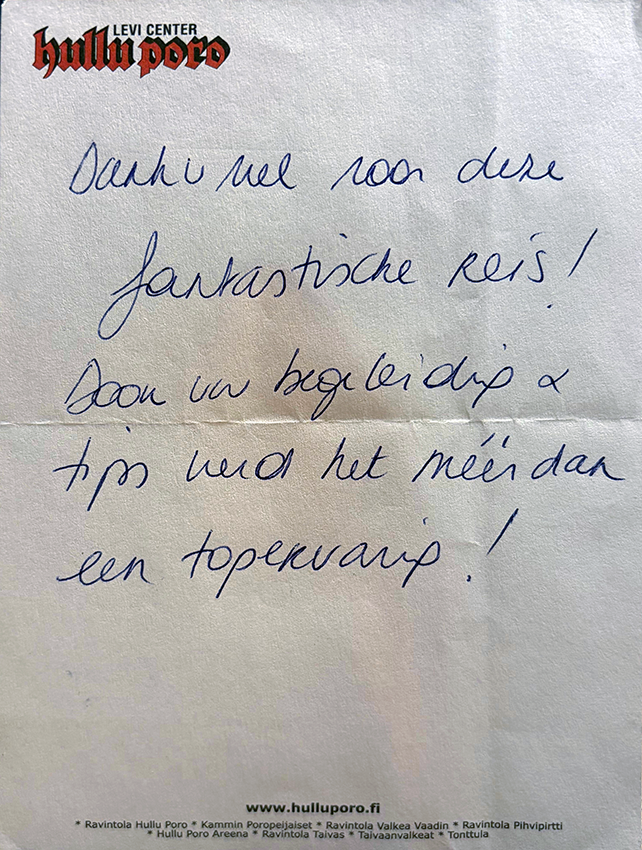 LEVI CENTER
hullu poro
Dank u wel voor deze
fantastische reis!
Door uw begeleiding &
tips werd het méér dan
een topervaring!
www.hulluporo.fi
* Ravintola Hullu Poro * Kammin Poropeijaiset * Ravintola Valkea Vaadin * Ravintola Pihvipirtti
* Hullu Poro Areena * Ravintola Taivas * Taivaanvalkeat * Tonttula